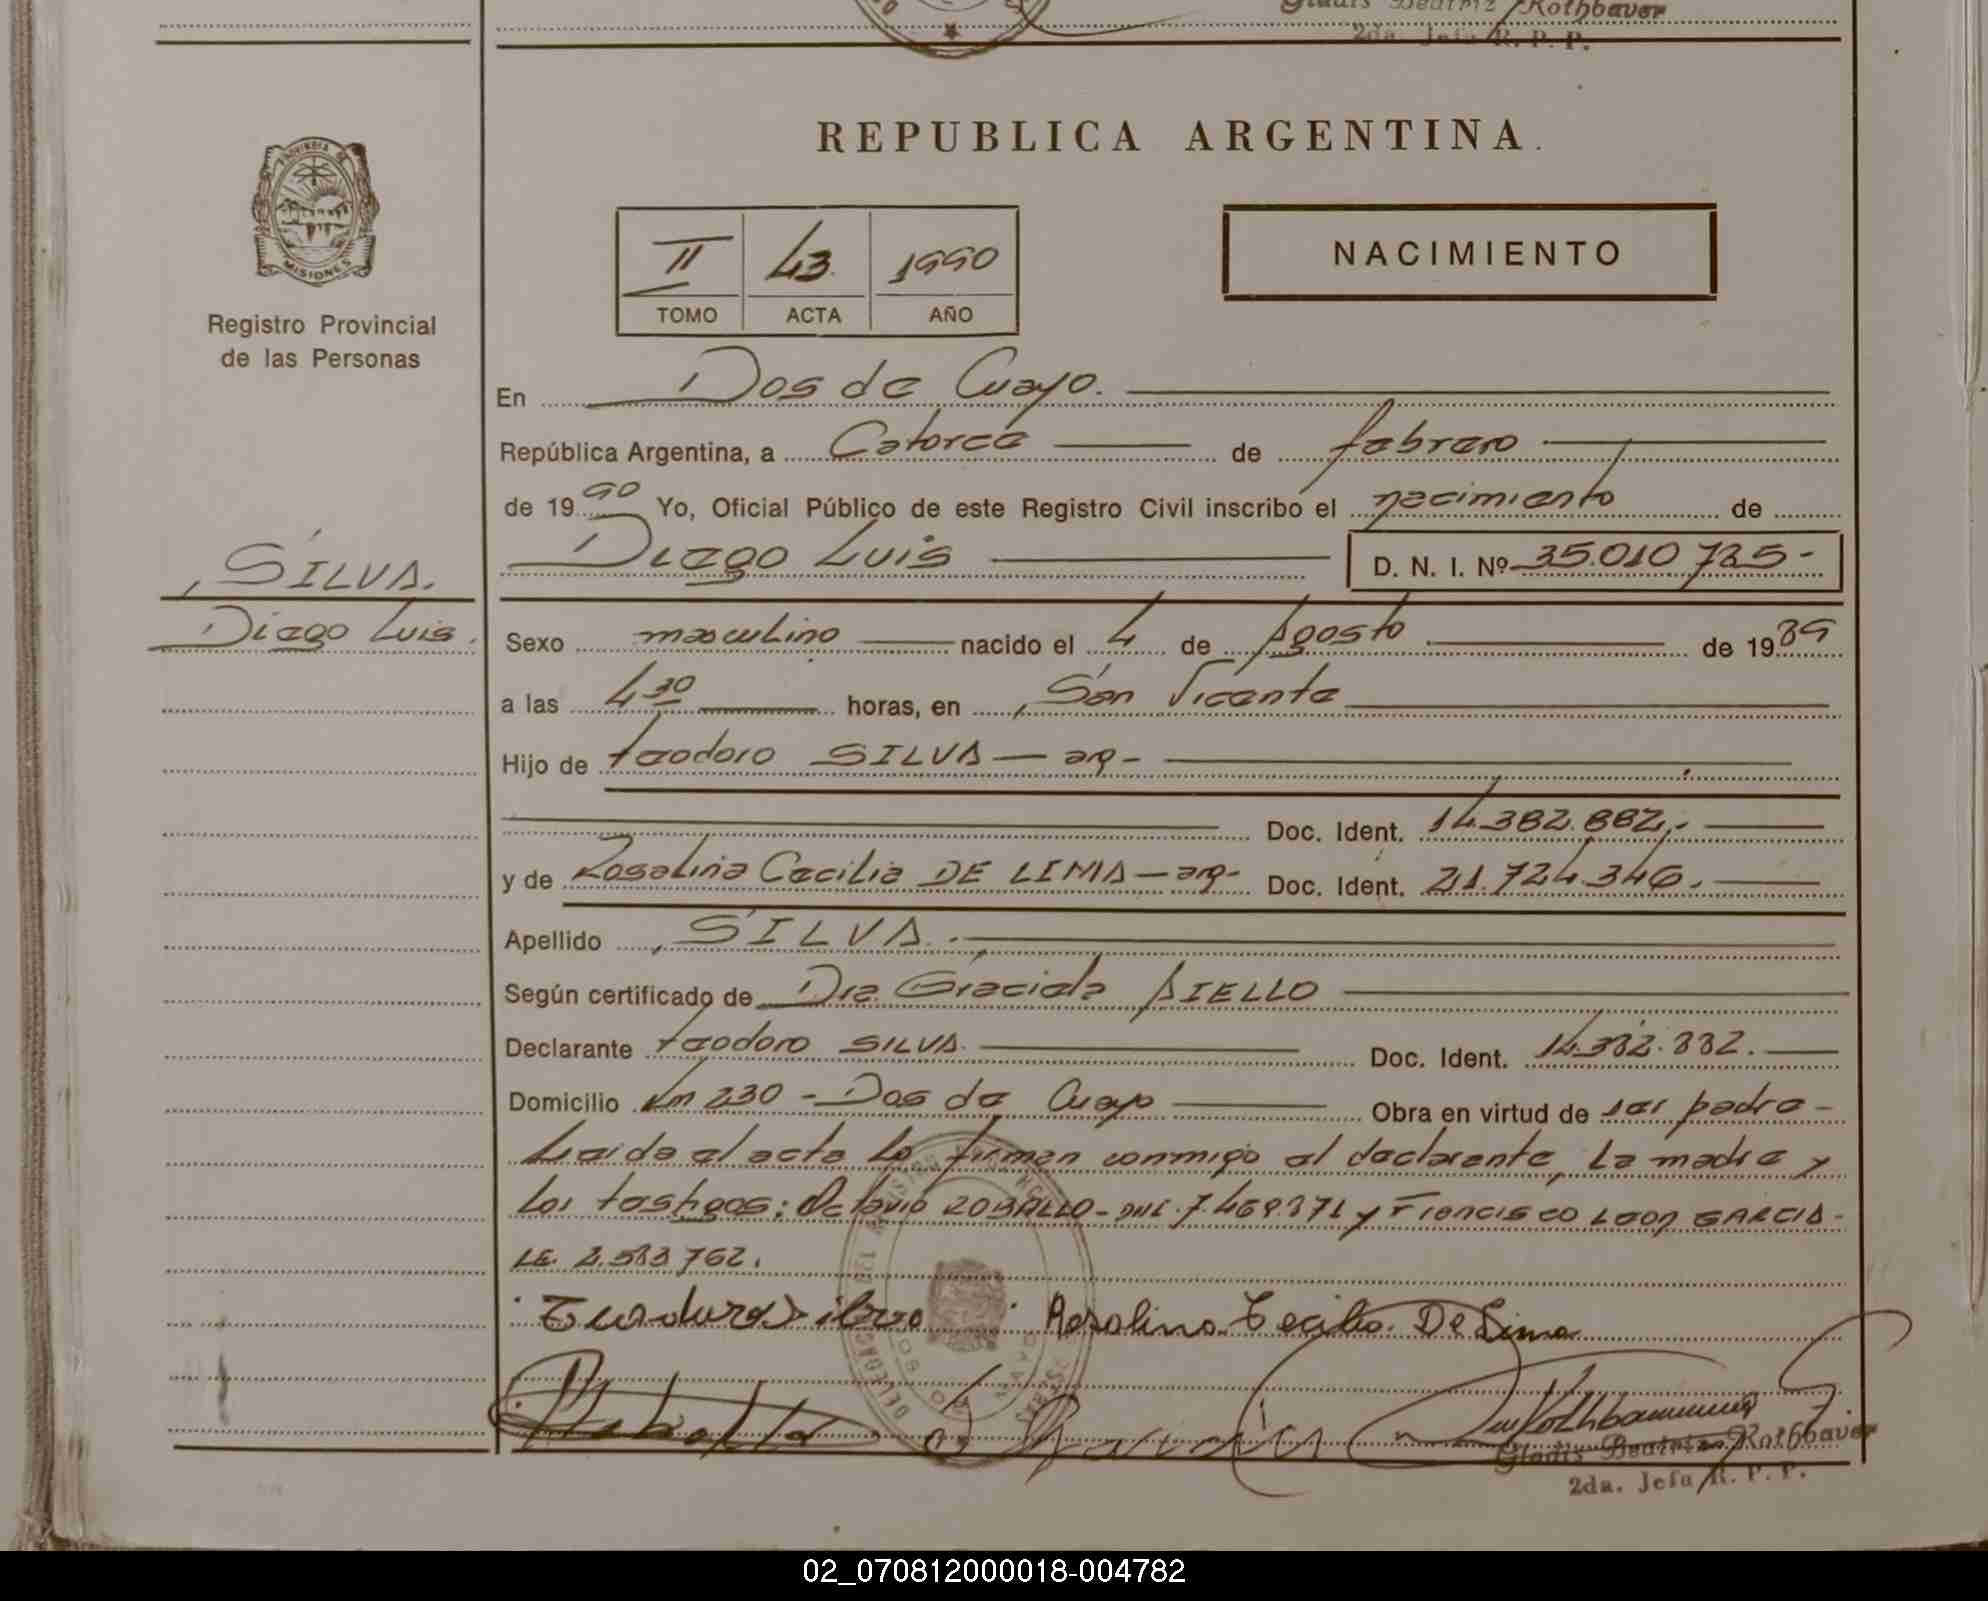 Gladis Beatriz Rothbaver
2da. Jefa R. P. P.
PROVINCIA DE
MISIONES
Registro Provincial
de las Personas
SILVA.
Diego Luis.
REPUBLICA ARGENTINA.
II 43 1990
TOMO ACTA AÑO
NACIMIENTO
En Dos de Mayo.
República Argentina, a Catorce de febrero
de 1990 Yo, Oficial Público de este Registro Civil inscribo el nacimiento de
Diego Luis D. N. I. Nº 35.010.725-
Sexo masculino nacido el 4 de Agosto de 1989
a las 4 30 horas, en San Vicente
Hijo de teodoro SILVA - arg-
Doc. Ident. 14.382.882.-
y de Rosalina Cecilia DE LIMA - arg- Doc. Ident. 21.724.346.
Apellido SILVA.
Según certificado de Dra. Graciela AIELLO
Declarante teodoro SILVA. Doc. Ident. 14.382.882.
Domicilio Km 230 - Dos de Mayo Obra en virtud de ser padre-
Leida el acta la firman conmigo el declarante, la madre y
los testigos: Octavio ROBALLO - DNI. y Francisco Leon GARCIA-
LE. 2.583.762.
Teodoro Silva Rosalina Cecilia De Lima
Gladis Beatriz Rothbaver
2da. Jefa R. P. P.
02_070812000018-004782